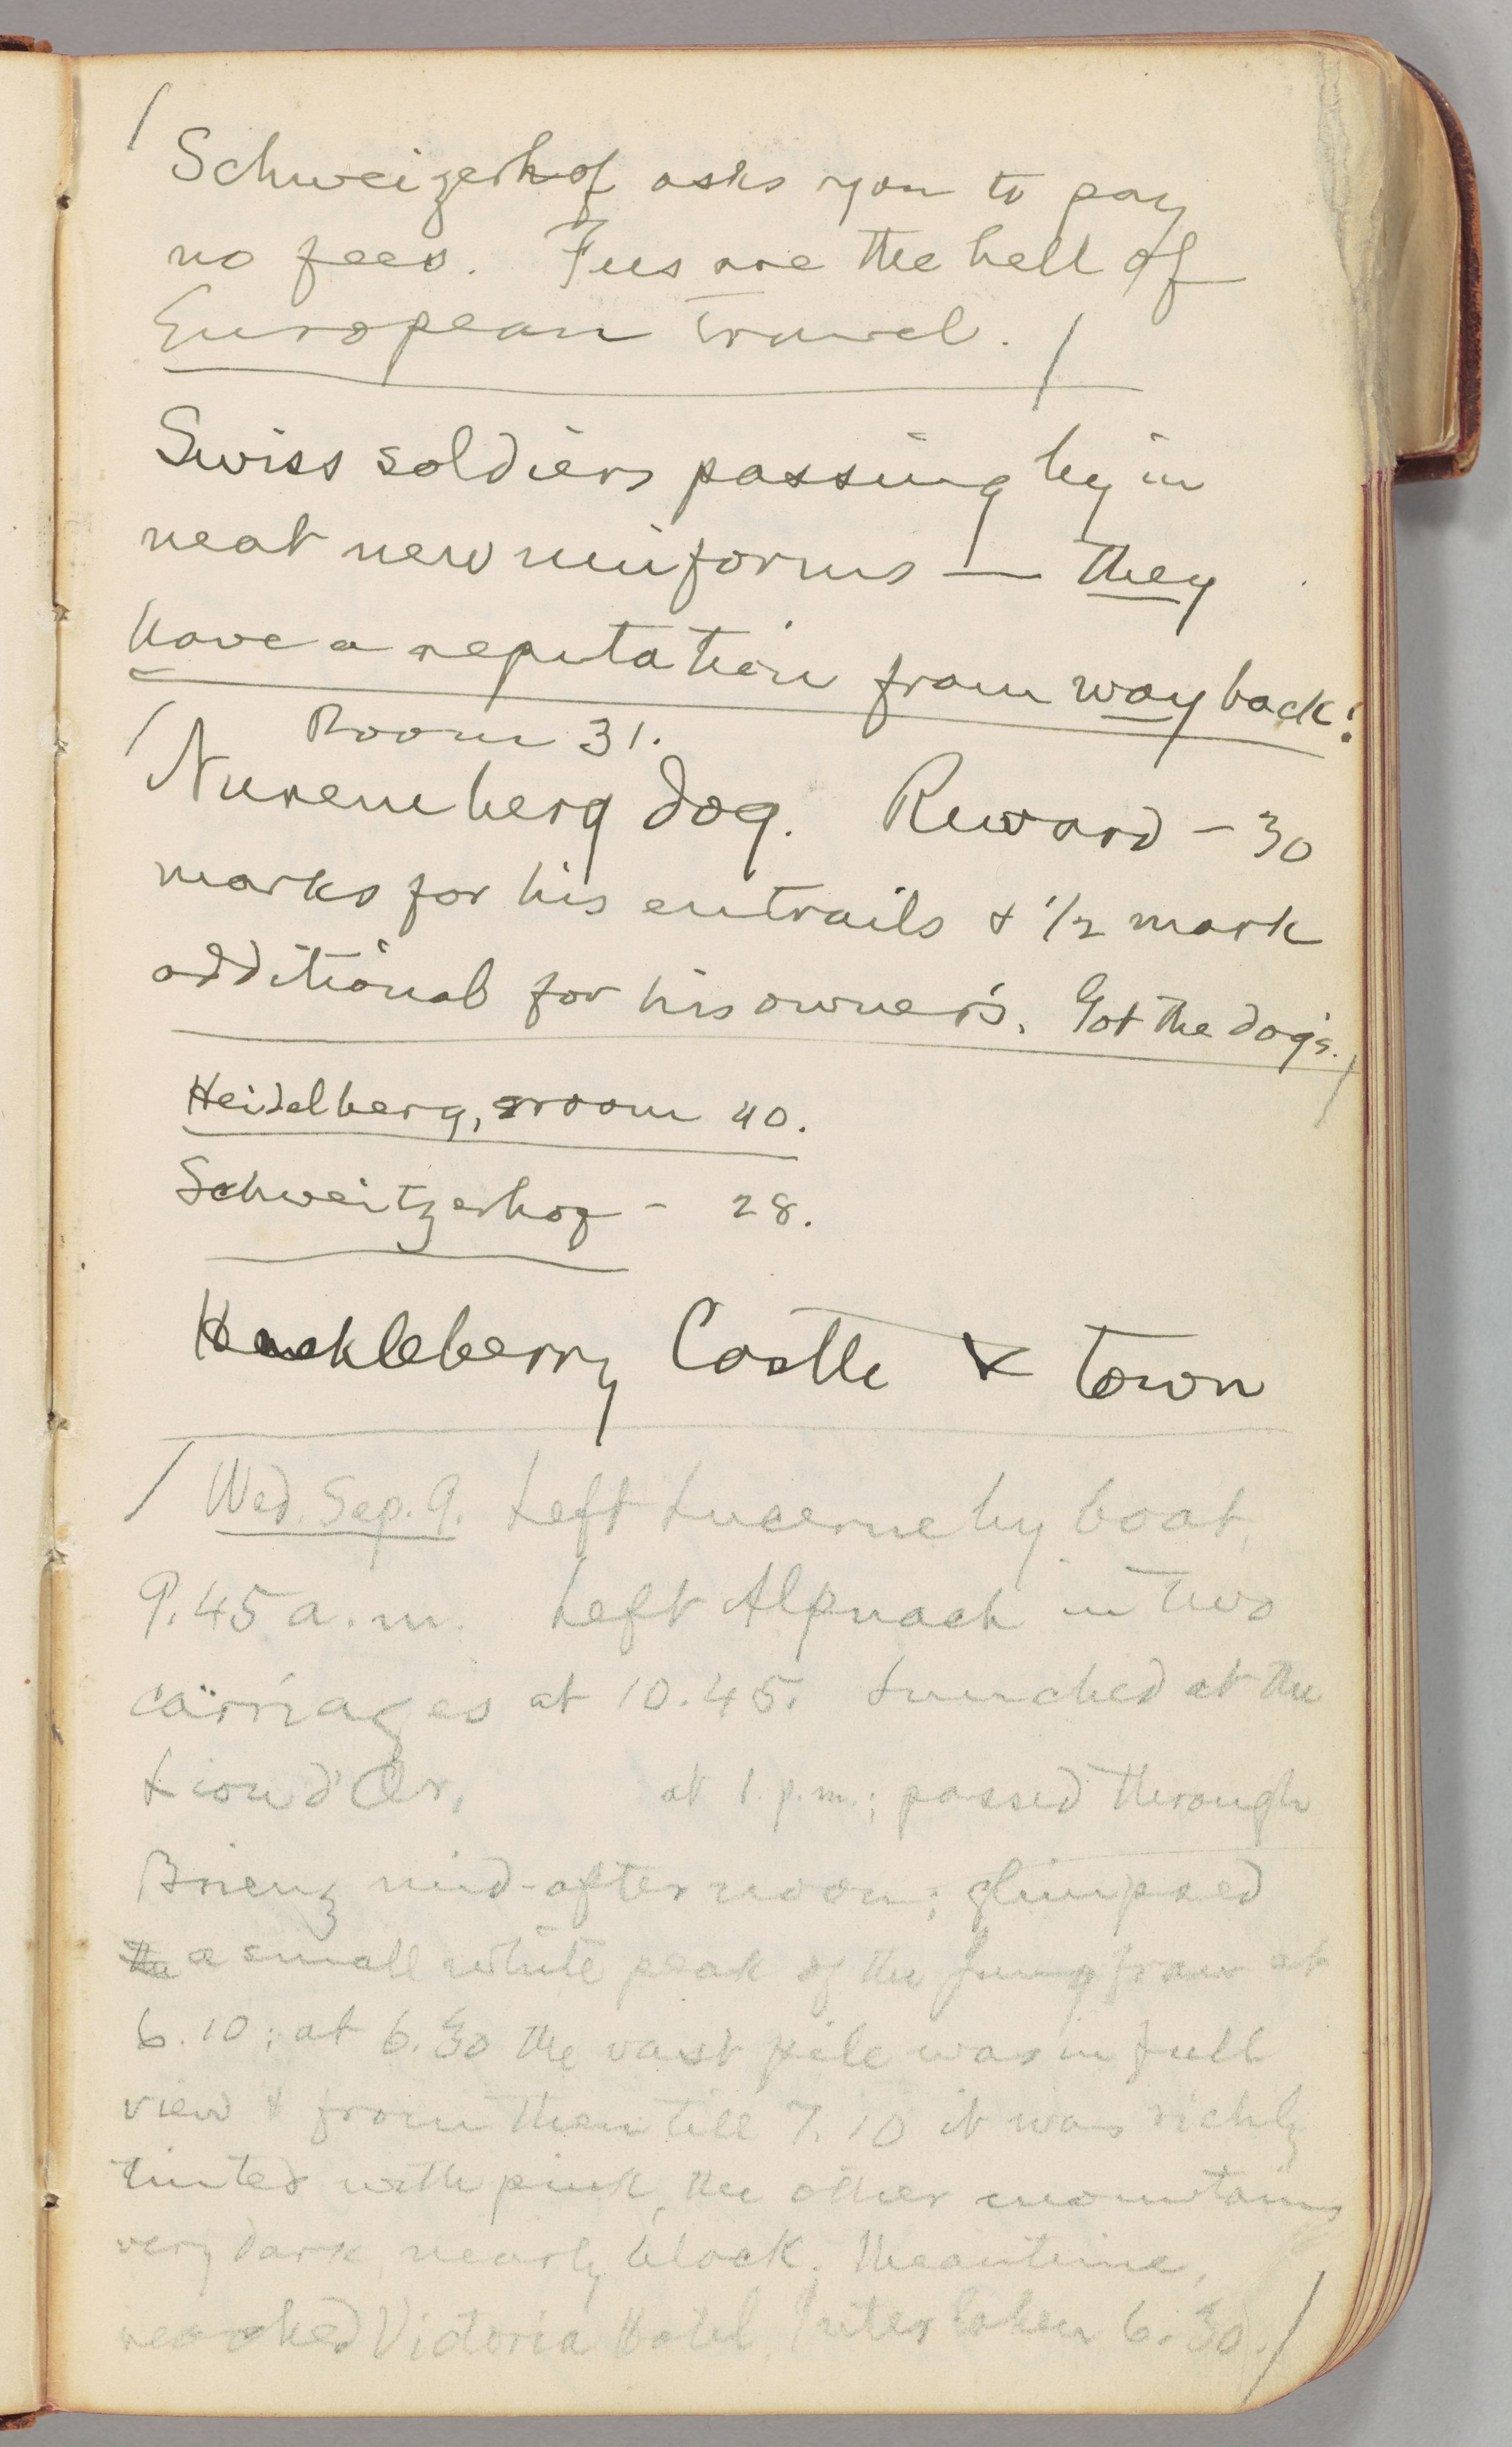 Schweizerhof asks you to pay
no fees. Fees are the hell of
European travel.
Swiss soldiers passing by in
neat new uniforms — they
have a reputation from way back!
Room 31.
Nuremberg dog. Reward – 30
marks for his entrails & 1/2 mark
additional for his owner's. Got the dog's.
Heidelberg, room 40.
Schweitzerhof – 28.
Huckleberry Castle & town
Wed. Sep. 9. Left Lucerne by boat,
9.45 a.m. Left Alpnach in two
carriages at 10.45. Lunched at the
Lion d'Or, at 1. p.m.; passed through
Brienz mid-afternoon; glimpsed
the a small white peak of the Jungfrau at
6.10; at 6.30 the vast pile was in full
view & from then till 7.10 it was richly
tinted with pink, the other mountains
very dark, nearly black. Meantime,
reached Victoria Hotel, Interlaken 6.30.